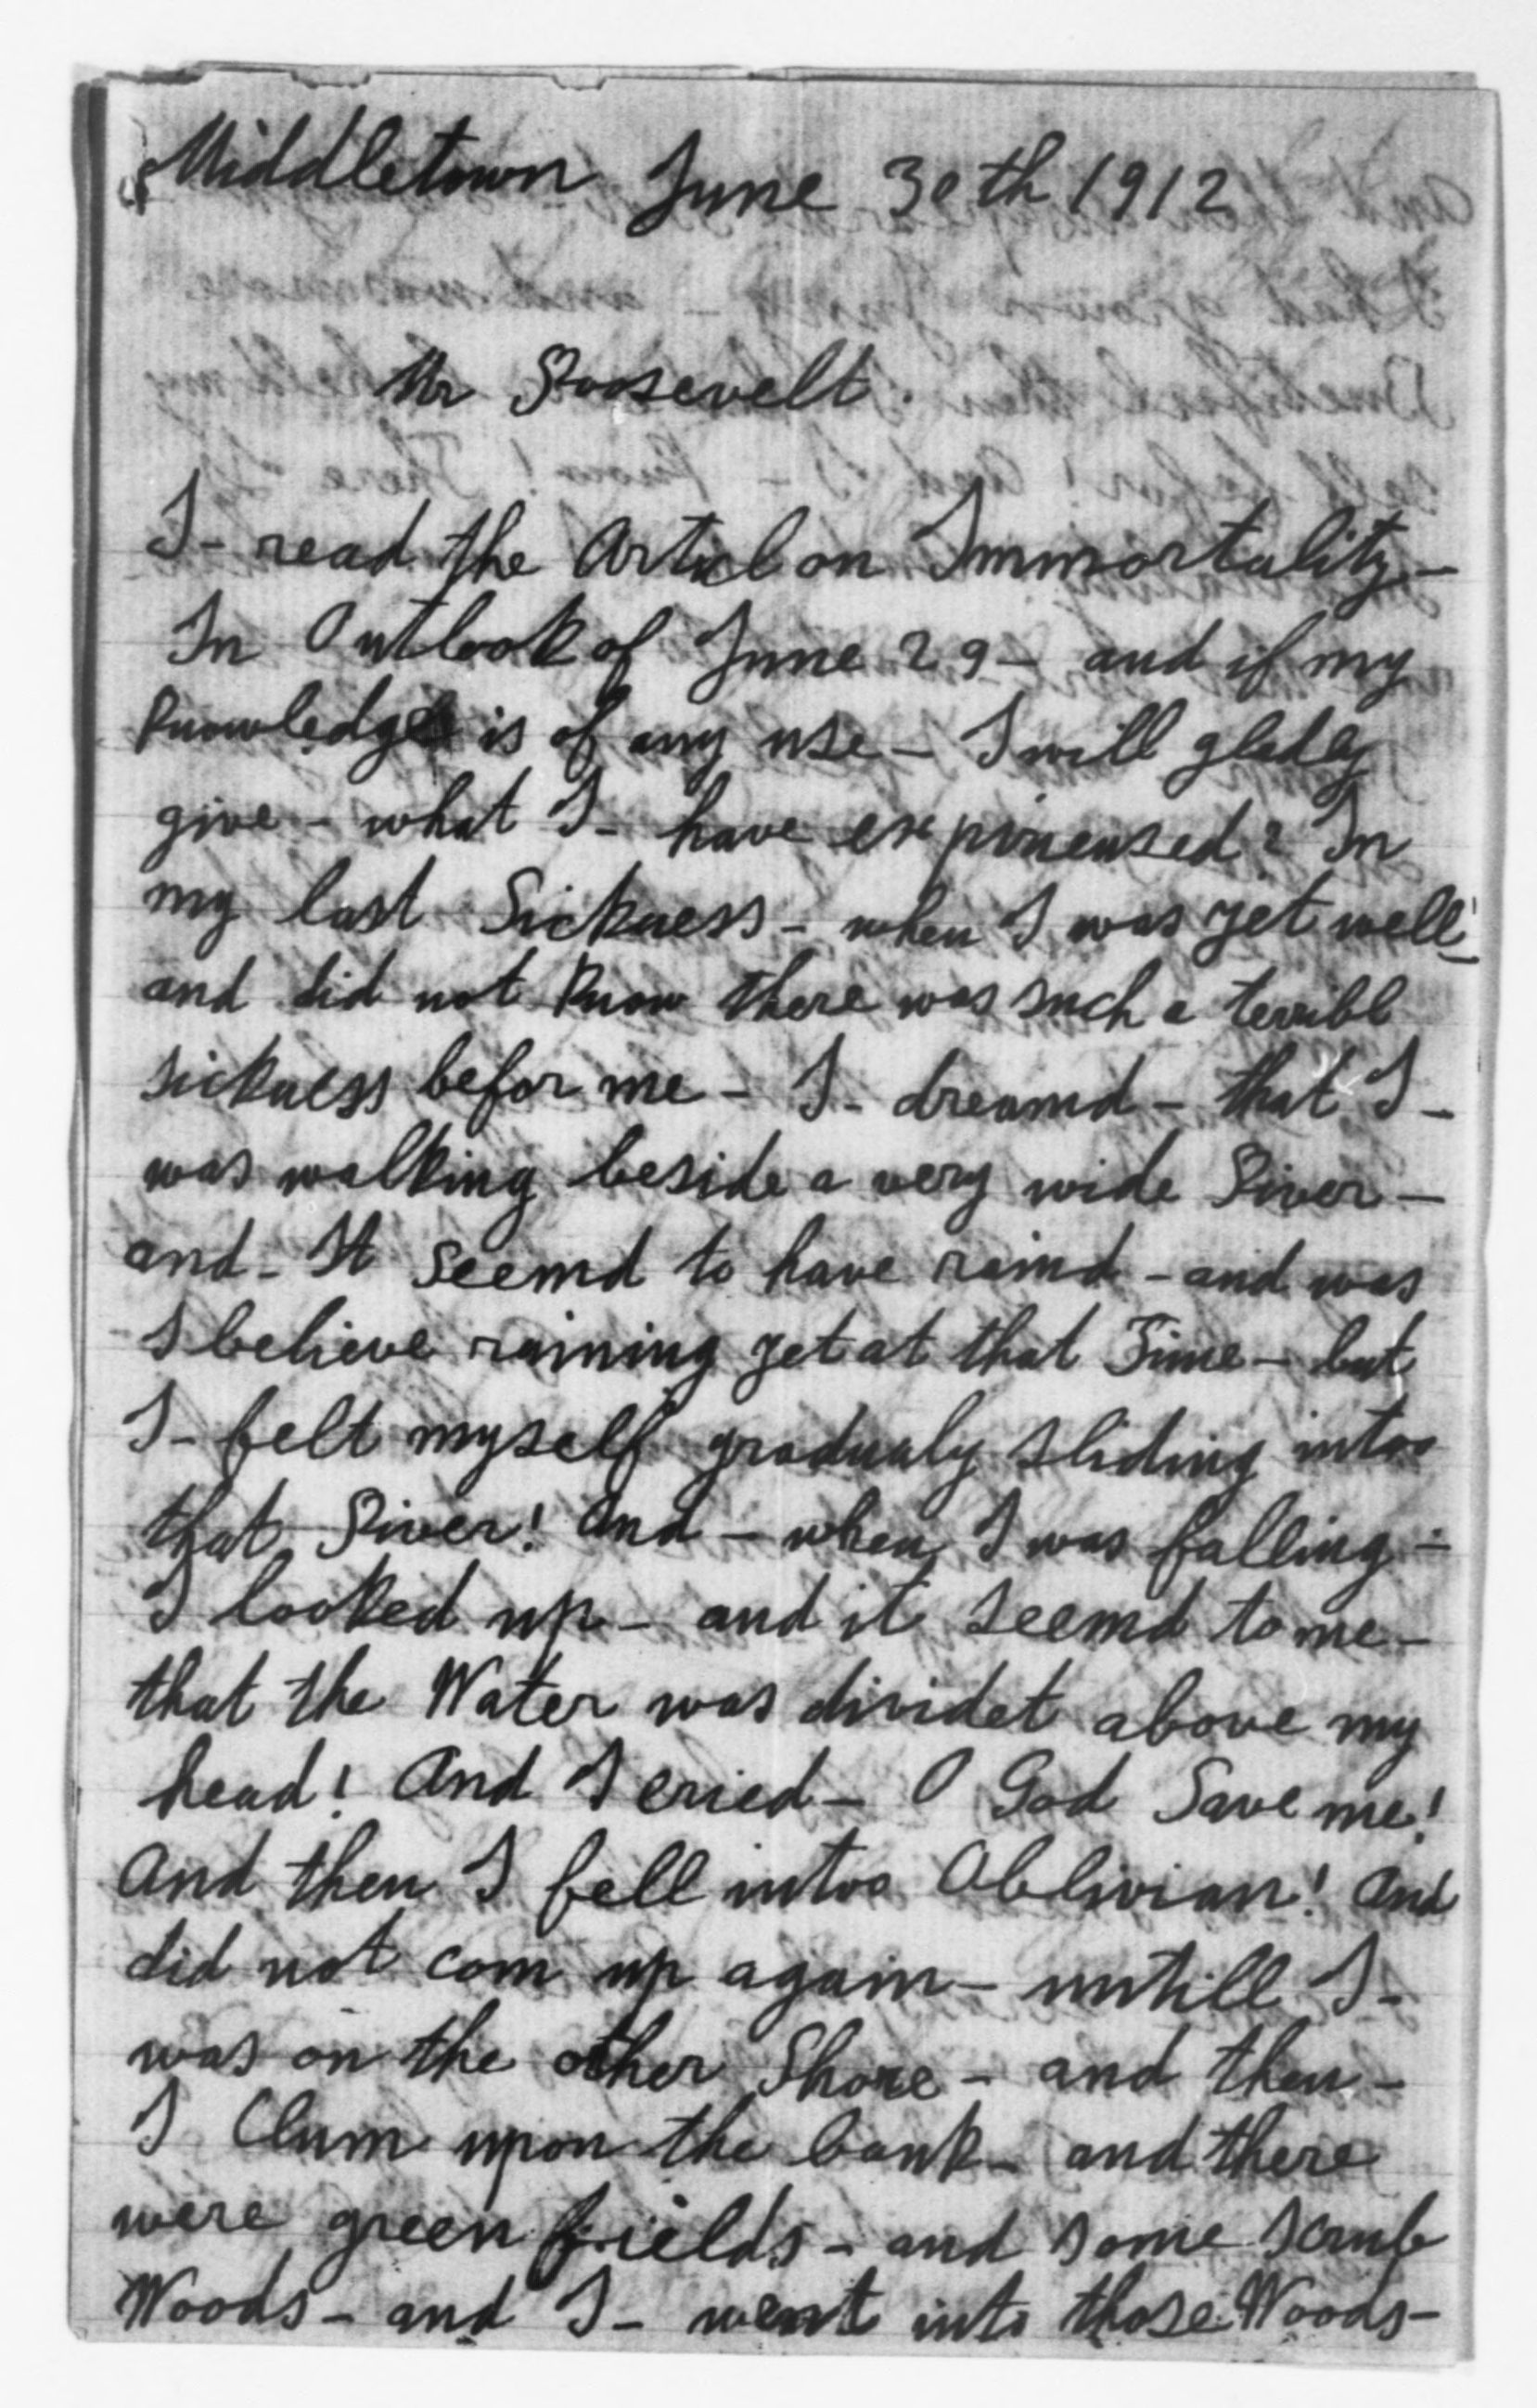 Middletown June 30th 1912
Mr Roosevelt.
I - read the Articl on Immortality -
In Outlook of June 29 - and if my
knowledge is of any use - I will gladly
give - what I - have expirensed? In
my last Sickness - when I was yet well!
and did not know there was such a terribl
sickness befor me - I - dreamd - that I -
was walking beside a very wide River -
and - It seemd to have raind - and was
I believe raining yet at that Time - but
I - felt myself gradualy sliding intoo
that River! And - when I was falling -
I looked up - and it seemd to me -
that the Water was dividet above my
head! And I cried - O God Save me!
And then I fell intoo Oblivian! And
did not com up again - untill I -
was on the other Shore - and then -
I Clum upon the bank - and there
were green fields - and some scrub
Woods - and I - went into those Woods -